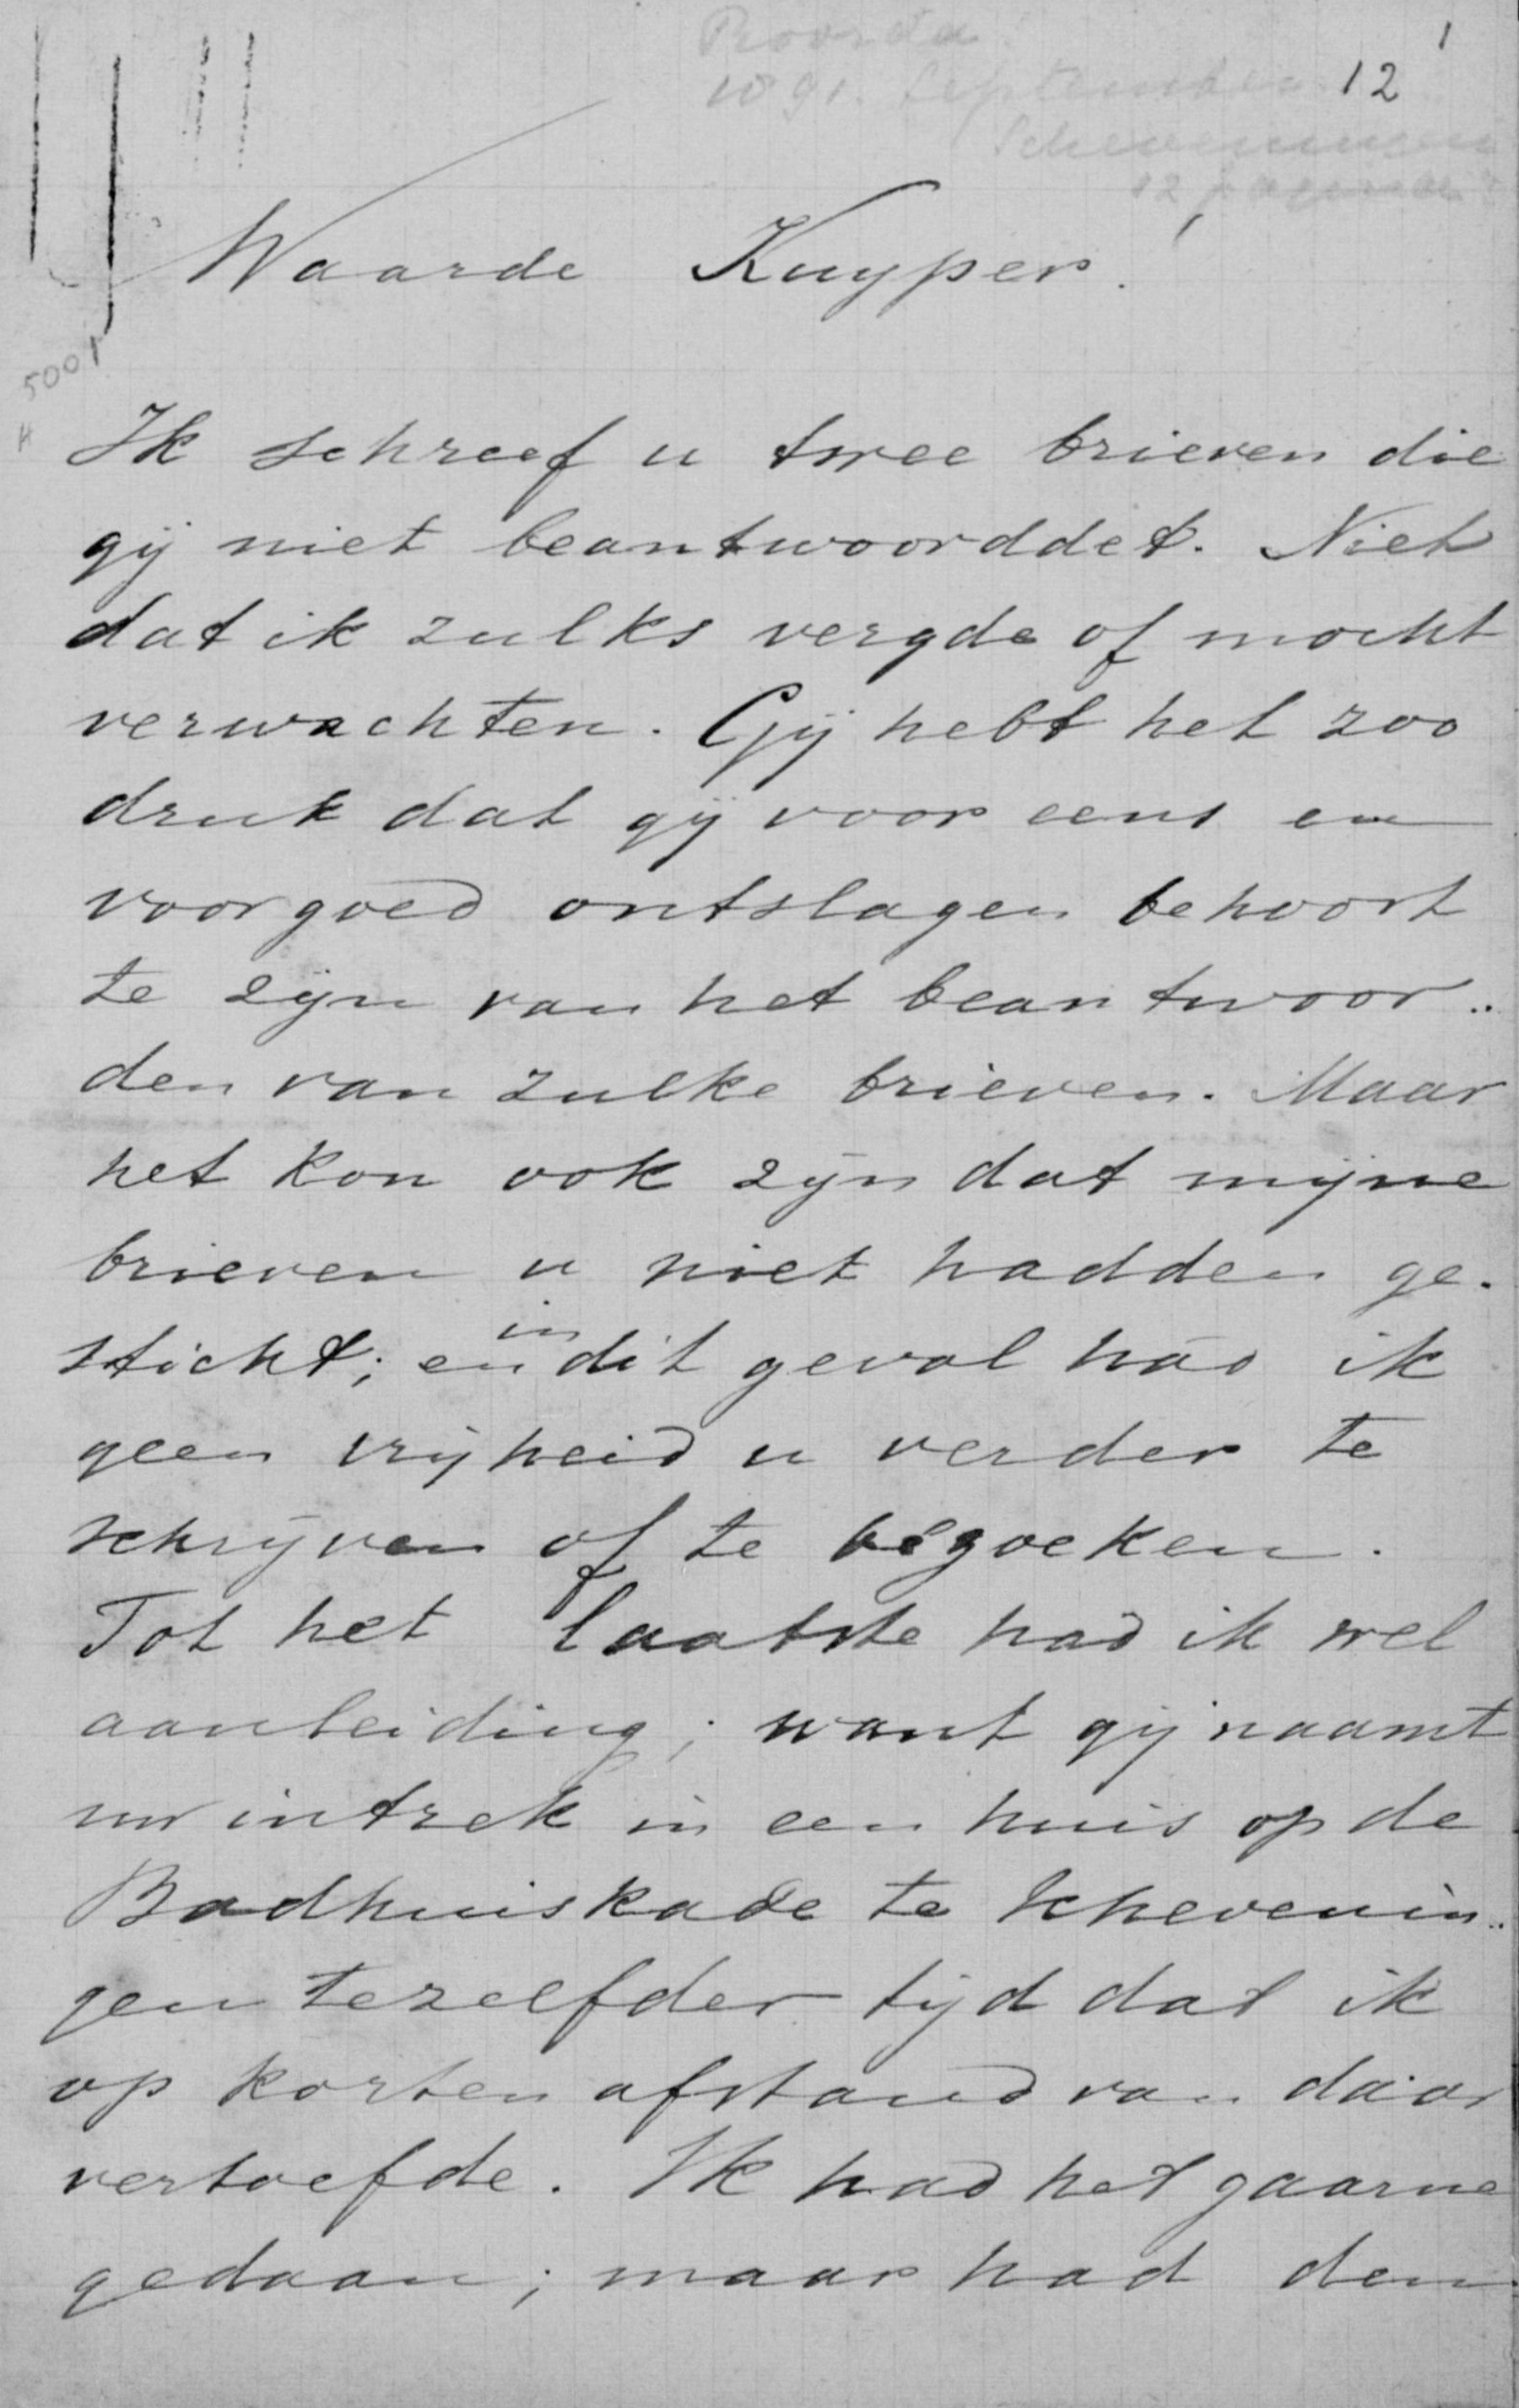 Roorda
1891. September
Scheveningen
12
1
Waarde Kuyper!
5001
Ik schreef u twee brieven die
gij niet beantwoorddet. Niet
dat ik zulks vergde of mocht
verwachten. Gij hebt het zoo
druk dat gij voor eens en
voorgoed ontslagen behoort
te zijn van het beantwoor..
den van zulke brieven. Maar
het kon ook zijn dat mijne
brieven u niet hadden ge.
sticht; en in dit geval had ik
geen vrijheid u verder te
schrijven of te bezoeken.
Tot het laatste had ik wel
aanleiding; want gij naamt
uw intrek in een huis op de
Badhuiskade te Schevenin..
gen tezelfder tijd dat ik
op korten afstand van daar
vertoefde. Ik had het gaarne
gedaan; maar had den